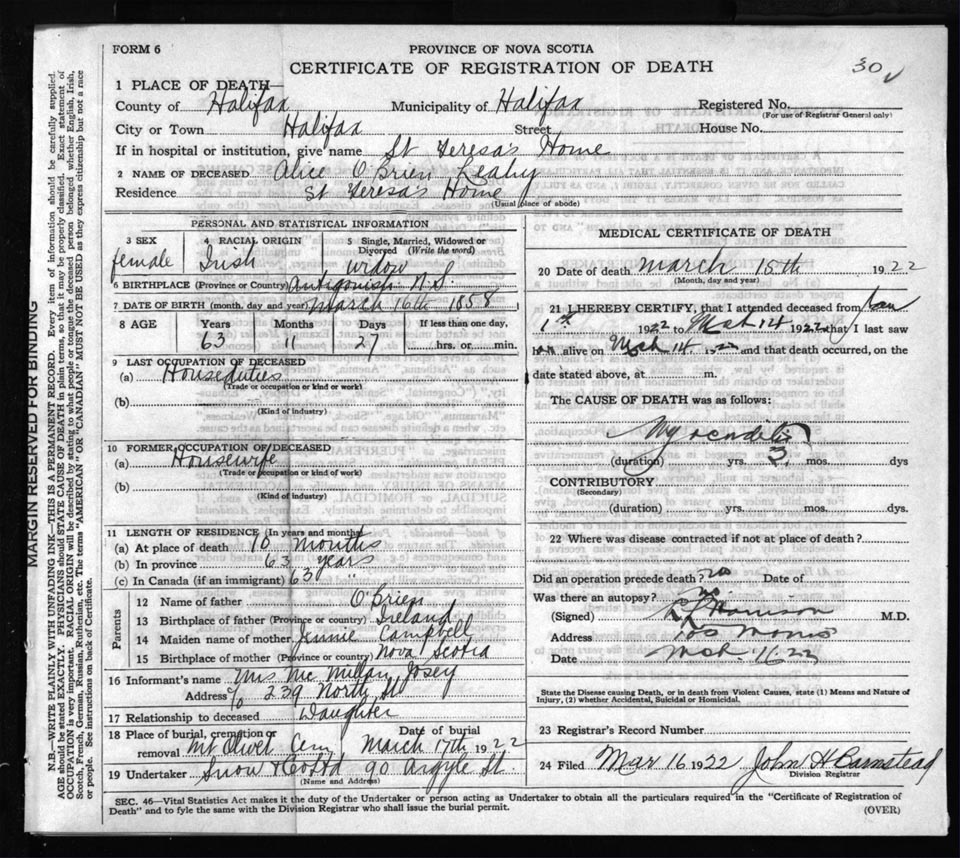 FORM 6
PROVINCE OF NOVA SCOTIA
CERTIFICATE OF REGISTRATION OF DEATH
30
1 PLACE OF DEATH—
County of Halifax Municipality of Halifax Registered No.
(For use of Registrar General only)
City or Town Halifax Street House No.
If in hospital or institution, give name St Teresa's Home
2 NAME OF DECEASED Alice O'Brien Leahy
Residence St Teresa's Home
(Usual place of abode)
PERSONAL AND STATISTICAL INFORMATION
3 SEX 4 RACIAL ORIGIN 5 Single, Married, Widowed or Divorced (Write the word)
female Irish widow
6 BIRTHPLACE (Province or Country) Antigonish N.S.
7 DATE OF BIRTH (month, day and year) March 16th 1858
8 AGE Years Months Days If less than one day,
63 11 27 hrs. or min.
9 LAST OCCUPATION OF DECEASED
(a) Houseduties
(Trade or occupation or kind or work)
(b)
(Kind of Industry)
10 FORMER OCCUPATION OF DECEASED
(a) Housewife
(Trade or occupation or kind of work)
(b)
(Kind of Industry)
11 LENGTH OF RESIDENCE (In years and months)
(a) At place of death 10 months
(b) In province 63 years
(c) In Canada (if an immigrant) 63 "
Parents
12 Name of father O'Brien
13 Birthplace of father (Province or country) Ireland
14 Maiden name of mother Jennie Campbell
15 Birthplace of mother (Province or country) Nova Scotia
16 Informant's name Mrs Mc Millan Josey
Address c/o 239 North St
17 Relationship to deceased Daughter
18 Place of burial, cremation or removal Mt Olivet Cem Date of burial March 17th 1922
19 Undertaker Snow & Co Ltd 90 Argyle St.
(Name and Address)
MEDICAL CERTIFICATE OF DEATH
20 Date of death March 15th 1922
(Month, day and year)
21 I HEREBY CERTIFY, that I attended deceased from Jan
1st 1922 to Mch 14 1922 that I last saw
h alive on Mch 14 1922 and that death occurred, on the
date stated above, at m.
The CAUSE OF DEATH was as follows:
Myocarditis
(duration) yrs. mos. dys
CONTRIBUTORY
(Secondary)
(duration) yrs. mos. dys.
22 Where was disease contracted if not at place of death?
Did an operation precede death? no Date of
Was there an autopsy? no
(Signed) Harrison M.D.
Address 105 Morris
Date Mch. 16 22
State the Disease causing Death, or in death from Violent Causes, state (1) Means and Nature of
Injury, (2) whether Accidental, Suicidal or Homicidal.
23 Registrar's Record Number
24 Filed Mar 16 1922 John H Barnstead
Division Registrar
SEC. 46—Vital Statistics Act makes it the duty of the Undertaker or person acting as Undertaker to obtain all the particulars required in the "Certificate of Registration of
Death" and to fyle the same with the Division Registrar who shall issue the burial permit.
(OVER)
MARGIN RESERVED FOR BINDING
N.B.—WRITE PLAINLY WITH UNFADING INK—THIS IS A PERMANENT RECORD. Every item of information should be carefully supplied.
AGE should be stated EXACTLY. PHYSICIANS should STATE CAUSE OF DEATH in plain terms, so that it may be properly classified. Exact statement of
OCCUPATION is very important. RACIAL ORIGIN will be described by stating to what people or tongue the deceased person belonged whether English, Irish,
Scotch, French, German, Russian, Ruthenian, etc. The terms "AMERICAN" OR "CANADIAN" MUST NOT BE USED as they express citizenship but not a race
or people. See instructions on back of Certificate.